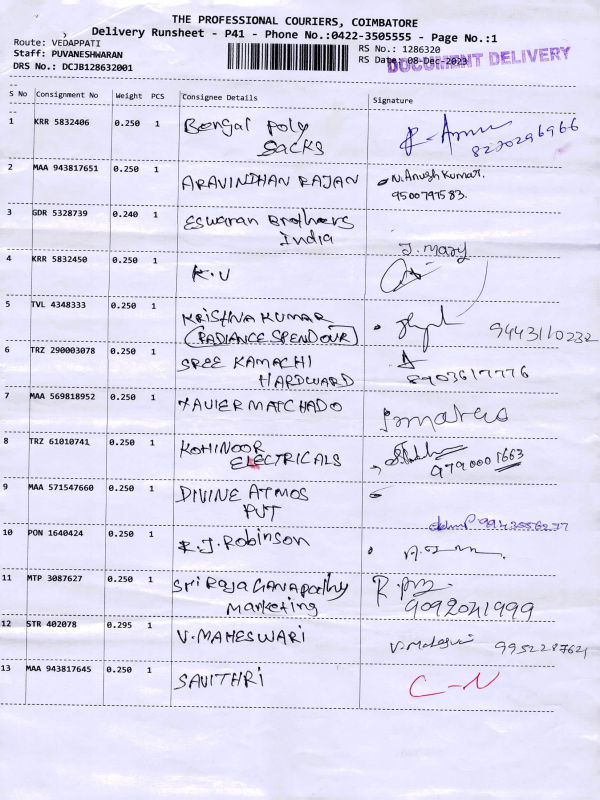 THE PROFESSIONAL COURIERS, COIMBATORE
Delivery Runsheet - P41 - Phone No.:0422-3505555 - Page No.:1
Route: VEDAPPATI
Staff: PUVANESHWARAN
DRS No.: DCJB128632001
RS No.: 1286320
RS Date: 08-Dec-2023
DOCUMENT DELIVERY
S No Consignment No Weight PCS Consignee Details Signature
1 KRR 5832406 0.250 1 Bengal Poly
Sacks
8220296966
2 MAA 943817651 0.250 1 ARAVINDHAN RAJAN N. Anush Kumar.
9500797583.
3 GDR 5328739 0.240 1 Eswaran Brothers
India J. Mary
4 KRR 5832450 0.250 1 K.V
5 TVL 4348333 0.250 1 KRISHNA KUMAR
(RADIANCE SPENDOUR) 9443110232
6 TRZ 290003078 0.250 1 SREE KAMACHI
HARDWARD 8903617776
7 MAA 569818952 0.250 1 XAVIER MATCHADO
8 TRZ 61010741 0.250 1 KOHINOOR
ELECTRICALS 9790001663
9 MAA 571547660 0.250 1 DIVINE ATMOS
PVT
10 PON 1640424 0.250 1 R.J. Robinson
11 MTP 3087627 0.250 1 Sri Raja Ganapathy
Marketing 9092041999
12 STR 402078 0.295 1 V. MAHESWARI 9952287621
13 MAA 943817645 0.250 1 SAVITHRI C-N